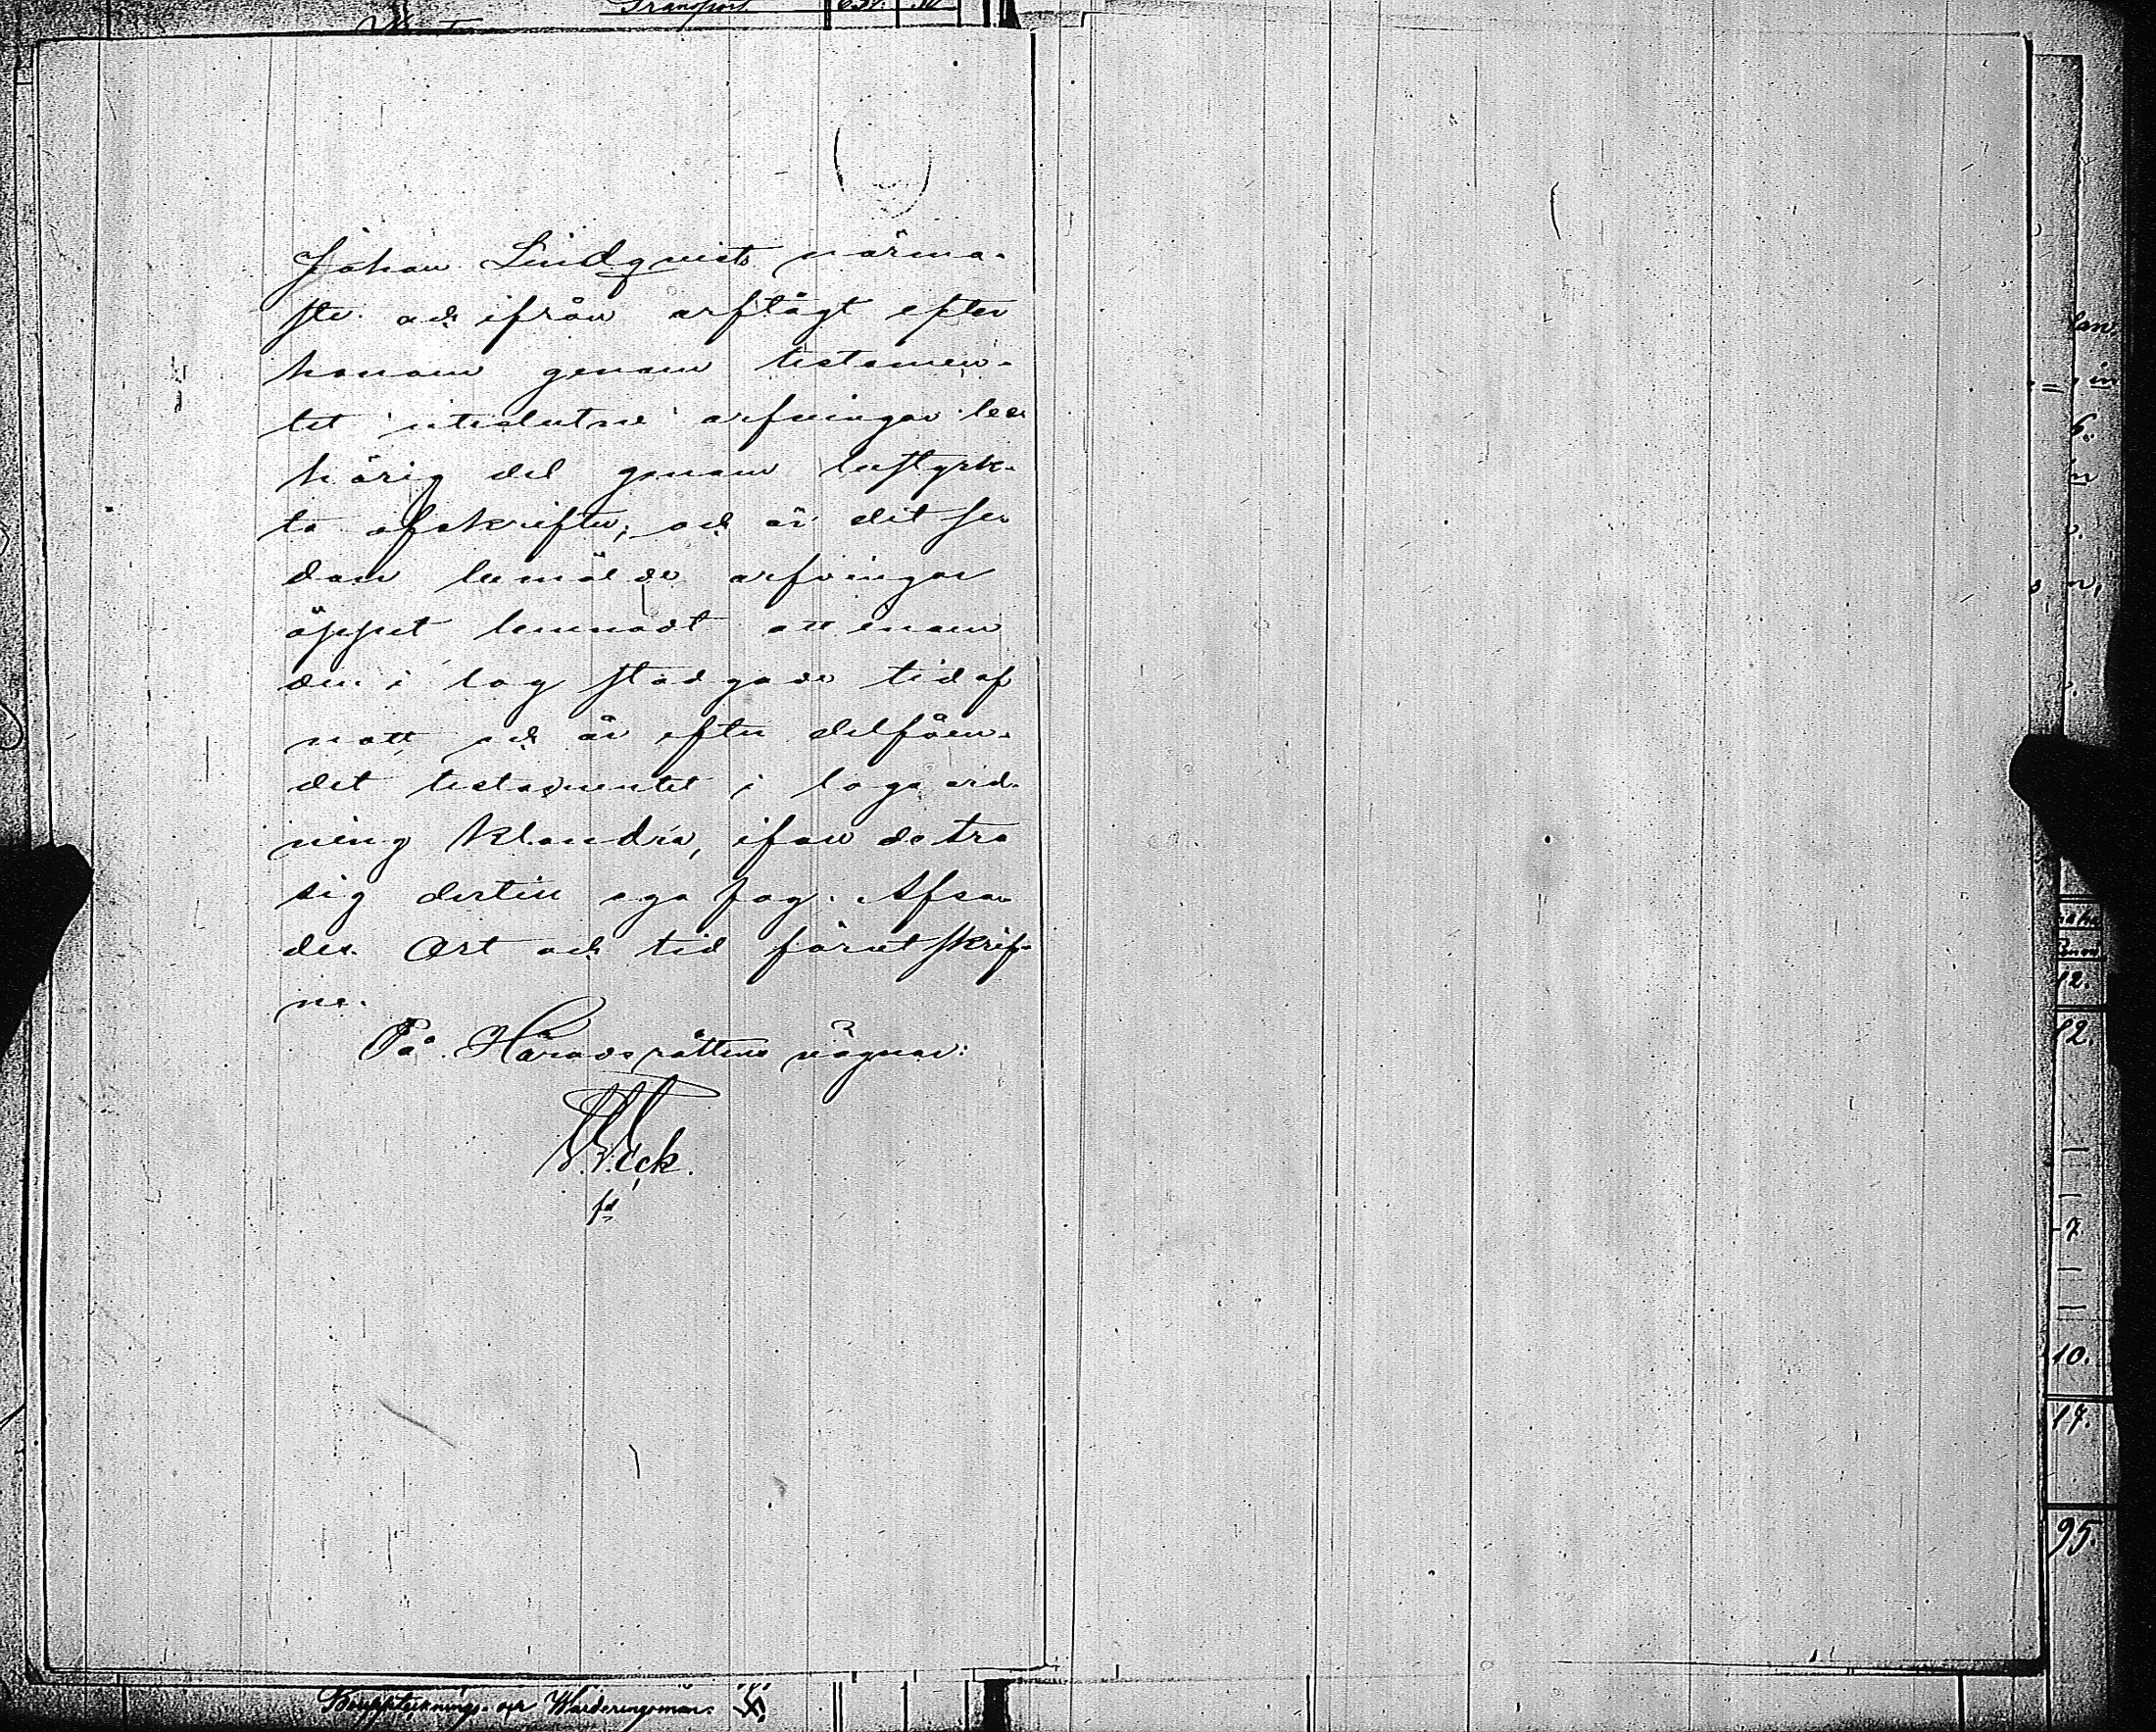 Transport 631. 30
Johan Lindqvists närma-
ste och ifrån arftägt efter
honom genom testamen-
tet uteslutne arfvingar be-
hörig del genom bestyrk-
ta afskrifter; och är det se-
dan bemälde arfvingar
öppet lemnadt att inom
den i lag stadgade tid af
natt och år efter delfåen-
det testamentet i laga ord-
ning klandra, ifan de tro
sig dertill ega fog. Afsa-
des. Ort och tid förutskrif-
ne.
På Häradsrättens vägnar:
fd
6.
12.
12.
7
10.
17.
95.
Bouppteknings- och Värderingsman.